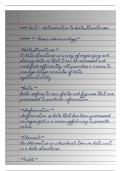 **** Unit - introduction to data structures
**** → Basic terminology →
*Data structures →
A data structure is a way of organizing and
storing data so that it can be accessed and
modified efficiently. It provides a means to
manage large amounts of data
systematically.
*Data →
Data refers to raw facts and figures that are
processed to produce information.
*Information →
Information is data that has been processed
or organized in a meaningful way to provide
value.
*Element →
An element is an individual item or data unit
in a data structure.
*Field →